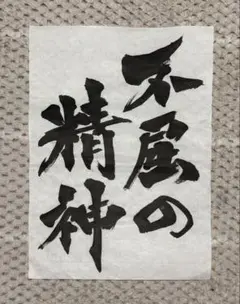 不屈の
精神